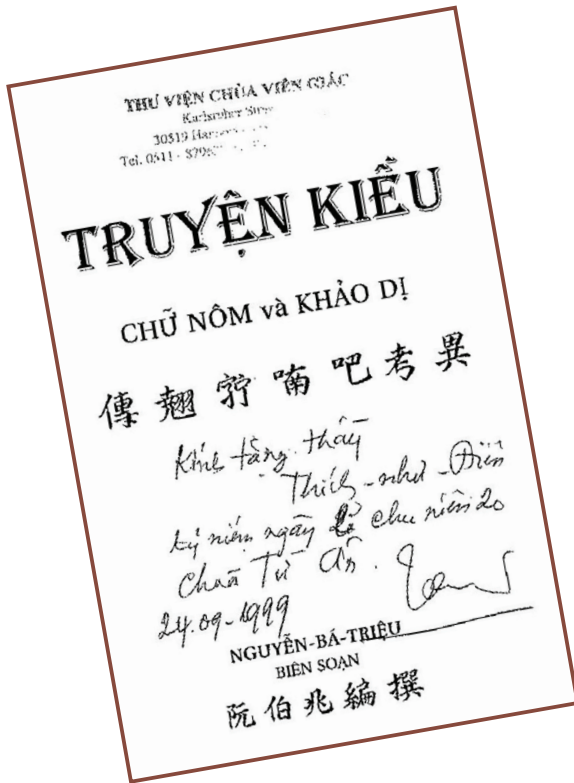 THƯ VIỆN CHÙA VIÊN GIÁC
Karlsruher Str.
30519 Han
Tel. 0511 - 879
TRUYỆN KIỀU
CHỮ NÔM và KHẢO DỊ
傳翹𡨸喃吧考異
Kính tặng thầy
Thích-như-Điển
kỷ niệm ngày lễ chu niên 20
Chùa Từ Ân.
24.09-1999
NGUYỄN-BÁ-TRIỆU
BIÊN SOẠN
阮伯兆編撰